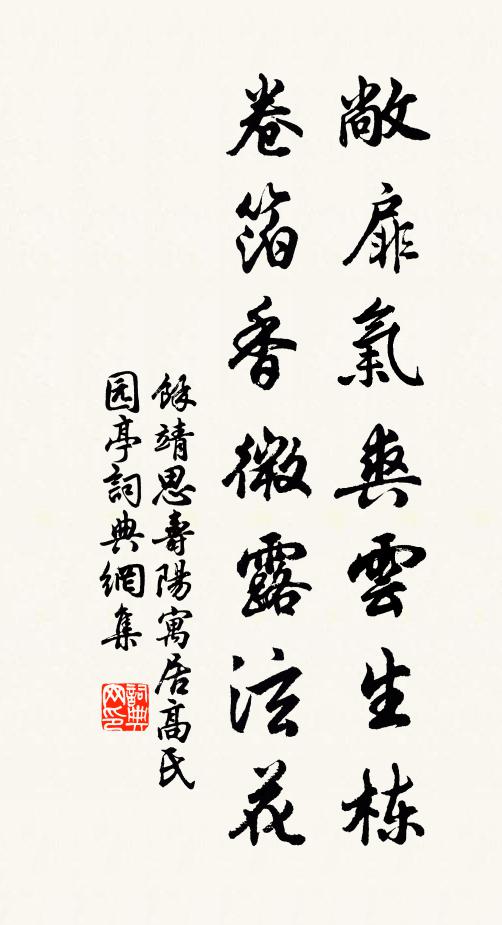 敞扉氣爽雲生栋
卷箔香微露泫花
餘靖思壽陽寓居高氏
园亭詞典網集
詞典网印